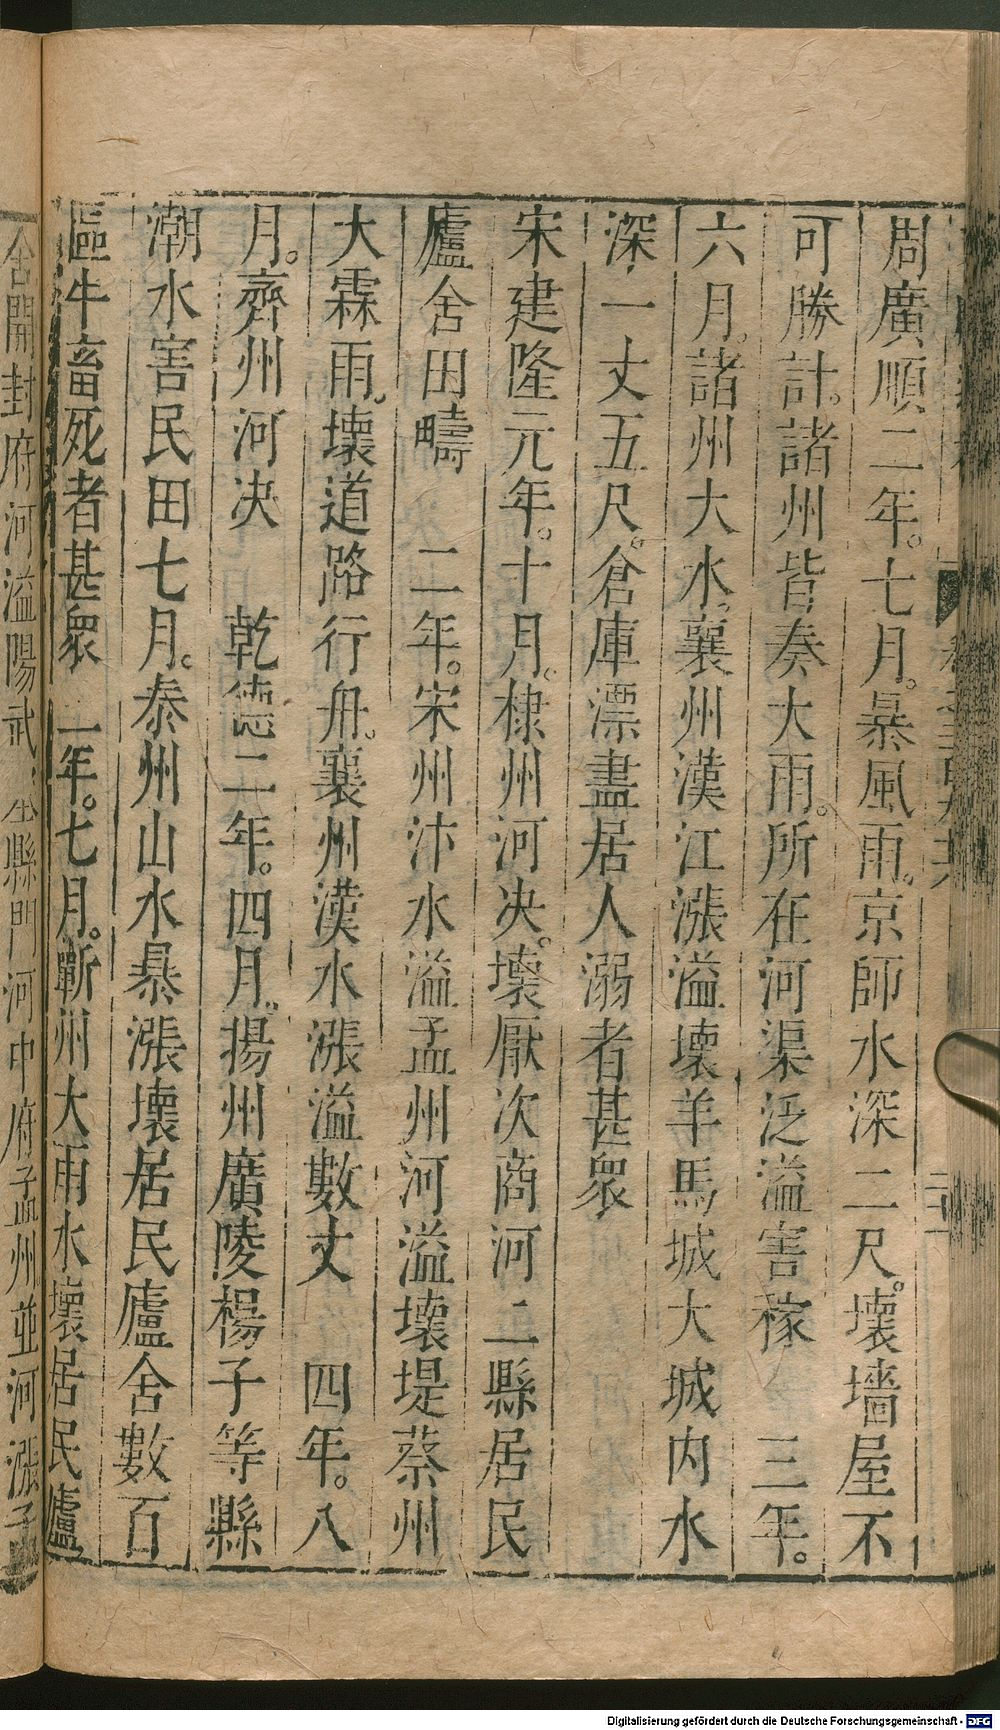 周廣順二年。七月。暴風雨。京師水深二尺。壞墻屋不
可勝計。諸州皆奏大雨。所在河渠泛溢害稼　三年。
六月。諸州大水。襄州漢江漲溢壞羊馬城大城内水
深一丈五尺。倉庫漂盡居人溺者甚衆
宋建隆元年。十月。棣州河決。壞厭次商河二縣居民
廬舍田疇　二年。宋州汴水溢孟州河溢壞堤蔡州
大霖雨。壞道路行舟。襄州漢水漲溢數丈　四年。八
月。齊州河決　乾德二年。四月。揚州廣陵楊子等縣
潮水害民田七月。泰州山水暴漲壞居民廬舍數百
區牛畜死者甚衆　二年。七月。蘄州大雨水壞居民廬
舍開封府河溢陽武 縣門河中府孟州並河漲
Digitalisierung gefördert durch die Deutsche Forschungsgemeinschaft - DFG